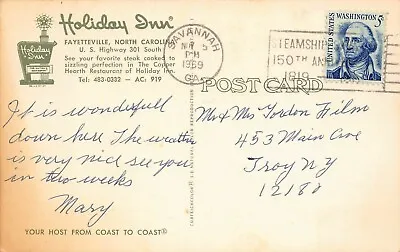 Holiday Inn®
FAYETTEVILLE, NORTH CAROLINA
U. S. Highway 301 South
See your favorite steak cooked to
sizzling perfection in The Copper
Hearth Restaurant of Holiday Inn.
Tel: 483-0332 - AC: 919
Holiday Inn
SAVANNAH
PM
1969
GA
STEAMSHIP
150TH AN
1819
UNITED STATES
WASHINGTON 5¢
POST CARD
It is wonderful
down here The weather
is very nice see you
in two weeks
Mary
Mr & Mrs Gordon Film
453 Main Ave
Troy NY
12180
YOUR HOST FROM COAST TO COAST®